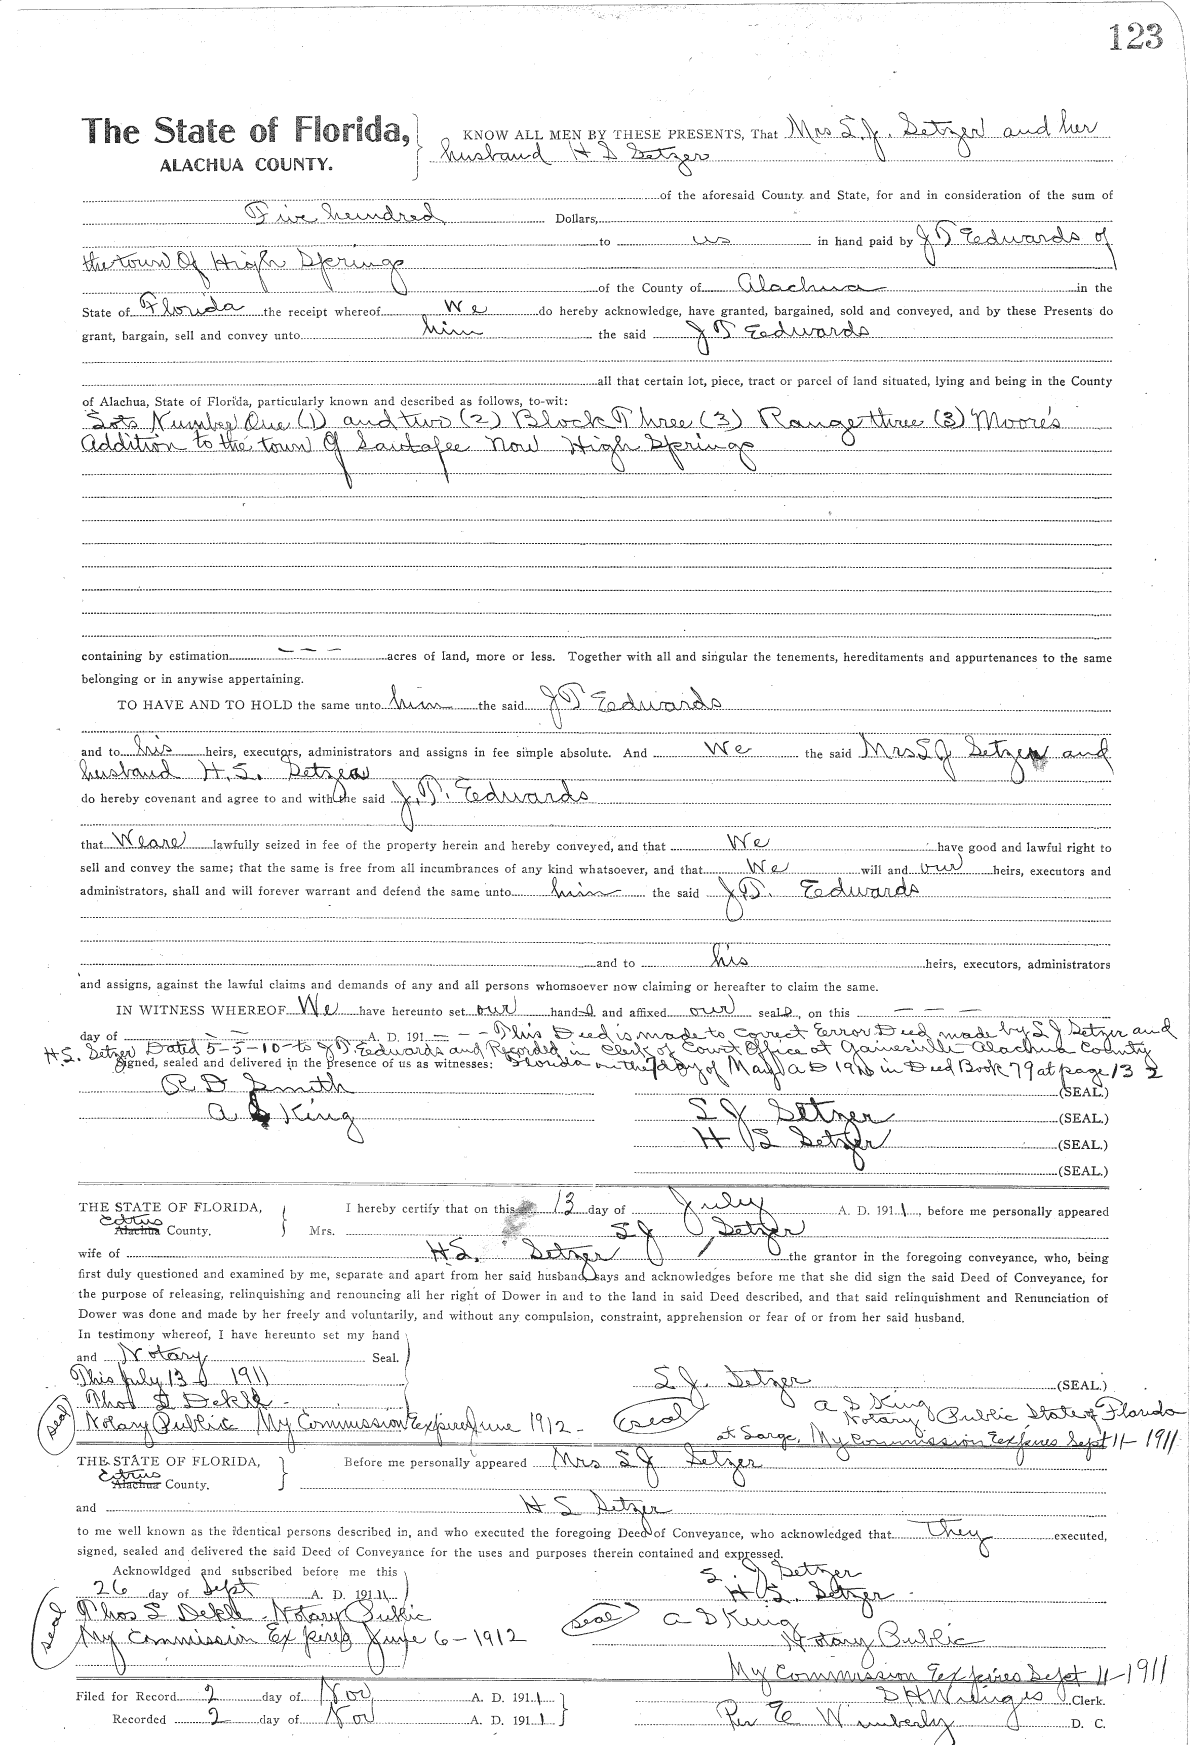 123
The State of Florida, KNOW ALL MEN BY THESE PRESENTS, That Mrs S. J. Setzer and her
ALACHUA COUNTY. husband H S Setzer
of the aforesaid County and State, for and in consideration of the sum of
Five hundred Dollars,
to us in hand paid by J T Edwards of
the town Of High Springs
of the County of Alachua in the
State of Florida the receipt whereof We do hereby acknowledge, have granted, bargained, sold and conveyed, and by these Presents do
grant, bargain, sell and convey unto him the said J T Eedwards
all that certain lot, piece, tract or parcel of land situated, lying and being in the County
of Alachua, State of Florida, particularly known and described as follows, to-wit:
Lots Number One (1) and two (2) Block Three (3) Range three (3) Moore's
Addition to the town Of Santafee Now High Springs
containing by estimation - - - acres of land, more or less. Together with all and singular the tenements, hereditaments and appurtenances to the same
belonging or in anywise appertaining.
TO HAVE AND TO HOLD the same unto him the said J T Eedwards
and to his heirs, executors, administrators and assigns in fee simple absolute. And We the said Mrs S J Setzer and
husband H. S. Setzer
do hereby covenant and agree to and with the said J. T. Edwards
that We are lawfully seized in fee of the property herein and hereby conveyed, and that We have good and lawful right to
sell and convey the same; that the same is free from all incumbrances of any kind whatsoever, and that We will and our heirs, executors and
administrators, shall and will forever warrant and defend the same unto him the said J T. Eedwards
and to his heirs, executors, administrators
and assigns, against the lawful claims and demands of any and all persons whomsoever now claiming or hereafter to claim the same.
IN WITNESS WHEREOF We have hereunto set our hands and affixed our seals, on this - - -
day of - - A. D. 191 - - - This Deed is made to Correct Error Deed made by S J Setzer and
H. S. Setzer Dated 5-5-10- to J T Edwards and Recorded in Clerk of Court Office at Gainesville Alachua County
Signed, sealed and delivered in the presence of us as witnesses: Florida on the 7 day of May A D 1910 in Deed Book 79 at page 132
R D Smith (SEAL.)
A S King S J Setzer (SEAL.)
H S Setzer (SEAL.)
(SEAL.)
THE STATE OF FLORIDA, I hereby certify that on this 13 day of July A. D. 191 1, before me personally appeared
Citrus
Alachua County. Mrs. S J Setzer
wife of H S. Setzer the grantor in the foregoing conveyance, who, being
first duly questioned and examined by me, separate and apart from her said husband, says and acknowledges before me that she did sign the said Deed of Conveyance, for
the purpose of releasing, relinquishing and renouncing all her right of Dower in and to the land in said Deed described, and that said relinquishment and Renunciation of
Dower was done and made by her freely and voluntarily, and without any compulsion, constraint, apprehension or fear of or from her said husband.
In testimony whereof, I have hereunto set my hand
and Notary Seal.
This July 13 1911 S J. Setzer (SEAL.)
Thos S Dekle A S King
seal Notary Public My Commission Expires June 1912 - seal Notary Public State of Florida
at Large. My Commission Expires Sept 11 - 1911
THE STATE OF FLORIDA, Before me personally appeared Mrs S J Setzer
Citrus
Alachua County.
and H S Setzer
to me well known as the identical persons described in, and who executed the foregoing Deed of Conveyance, who acknowledged that They executed,
signed, sealed and delivered the said Deed of Conveyance for the uses and purposes therein contained and expressed.
Acknowldged and subscribed before me this S. J Setzer
26 day of Sept A. D. 191 1 H. S. Setzer
seal Thos S Dekle Notary Public seal A S King
My Commission Expires June 6 - 1912 Notary Public
My Commission Expires Sept 11 - 1911
Filed for Record 2 day of Nov A. D. 191 1 Clerk.
Recorded 2 day of Nov A. D. 191 1 Per E Wimberly D. C.